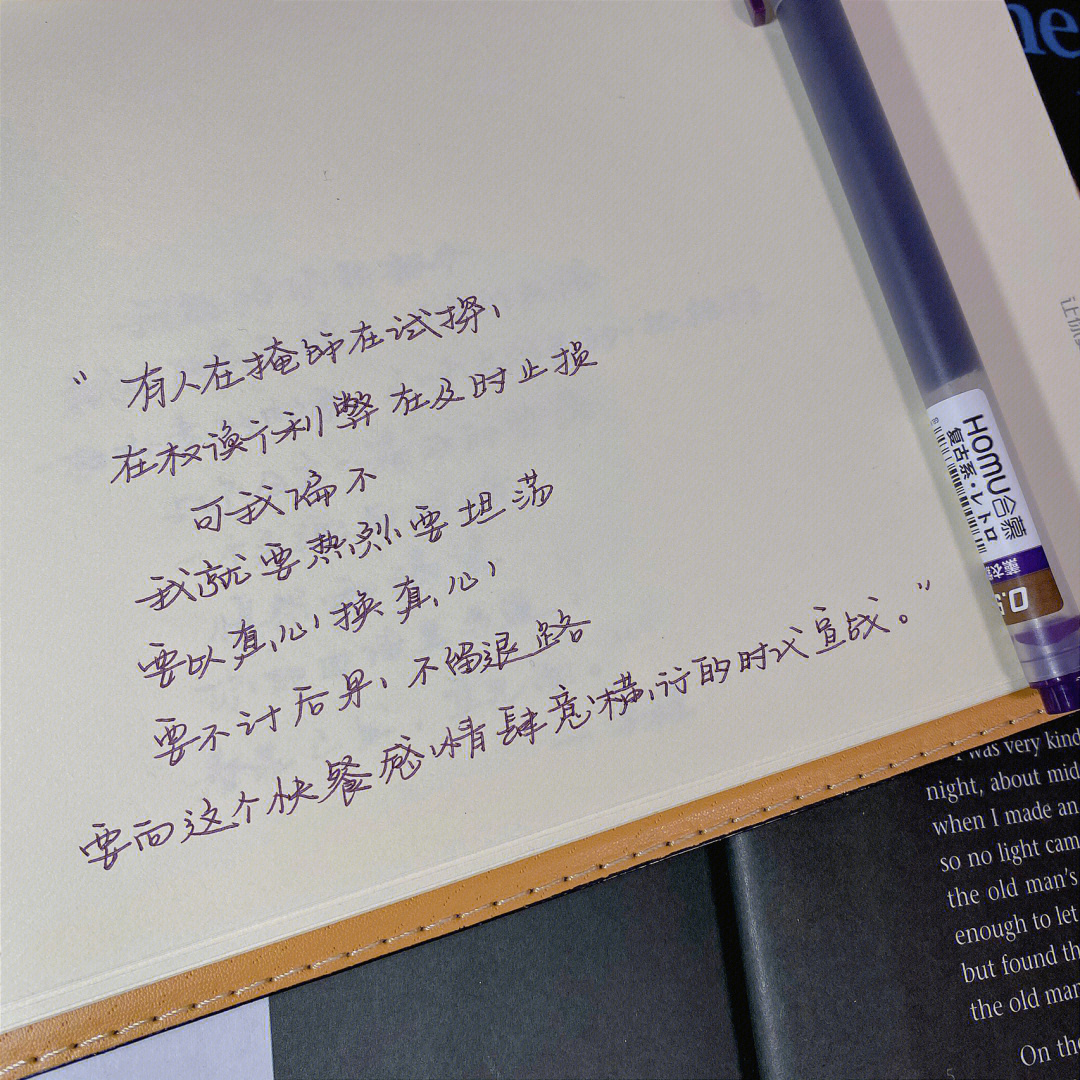 "有人在掩饰在试探、
在权衡利弊在及时止损
可我偏不
我就要热烈要坦荡
要以真心换真心
要不计后果,不留退路
要向这个快餐感情肆意横行的时代宣战。"
Homu 合慕
复古系·レトロ
薰衣
0.5
让你
ne
I was very kind
night, about mid
when I made an
so no light cam
the old man's
enough to let
but found th
the old mar
On the
5